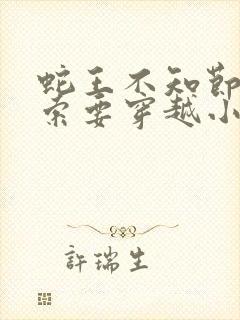 蛇王不知節
索要穿越小
許瑞生